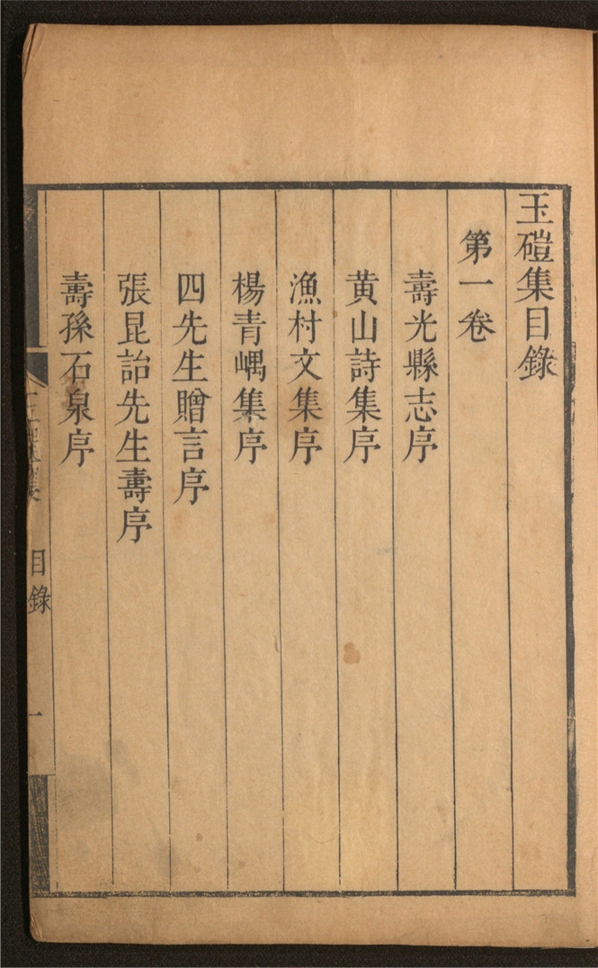 玉磑集目錄
第一卷
壽光縣志序
黄山詩集序
漁村文集序
楊青嵎集序
四先生贈言序
張昆詒先生壽序
壽孫石泉序
目錄
一